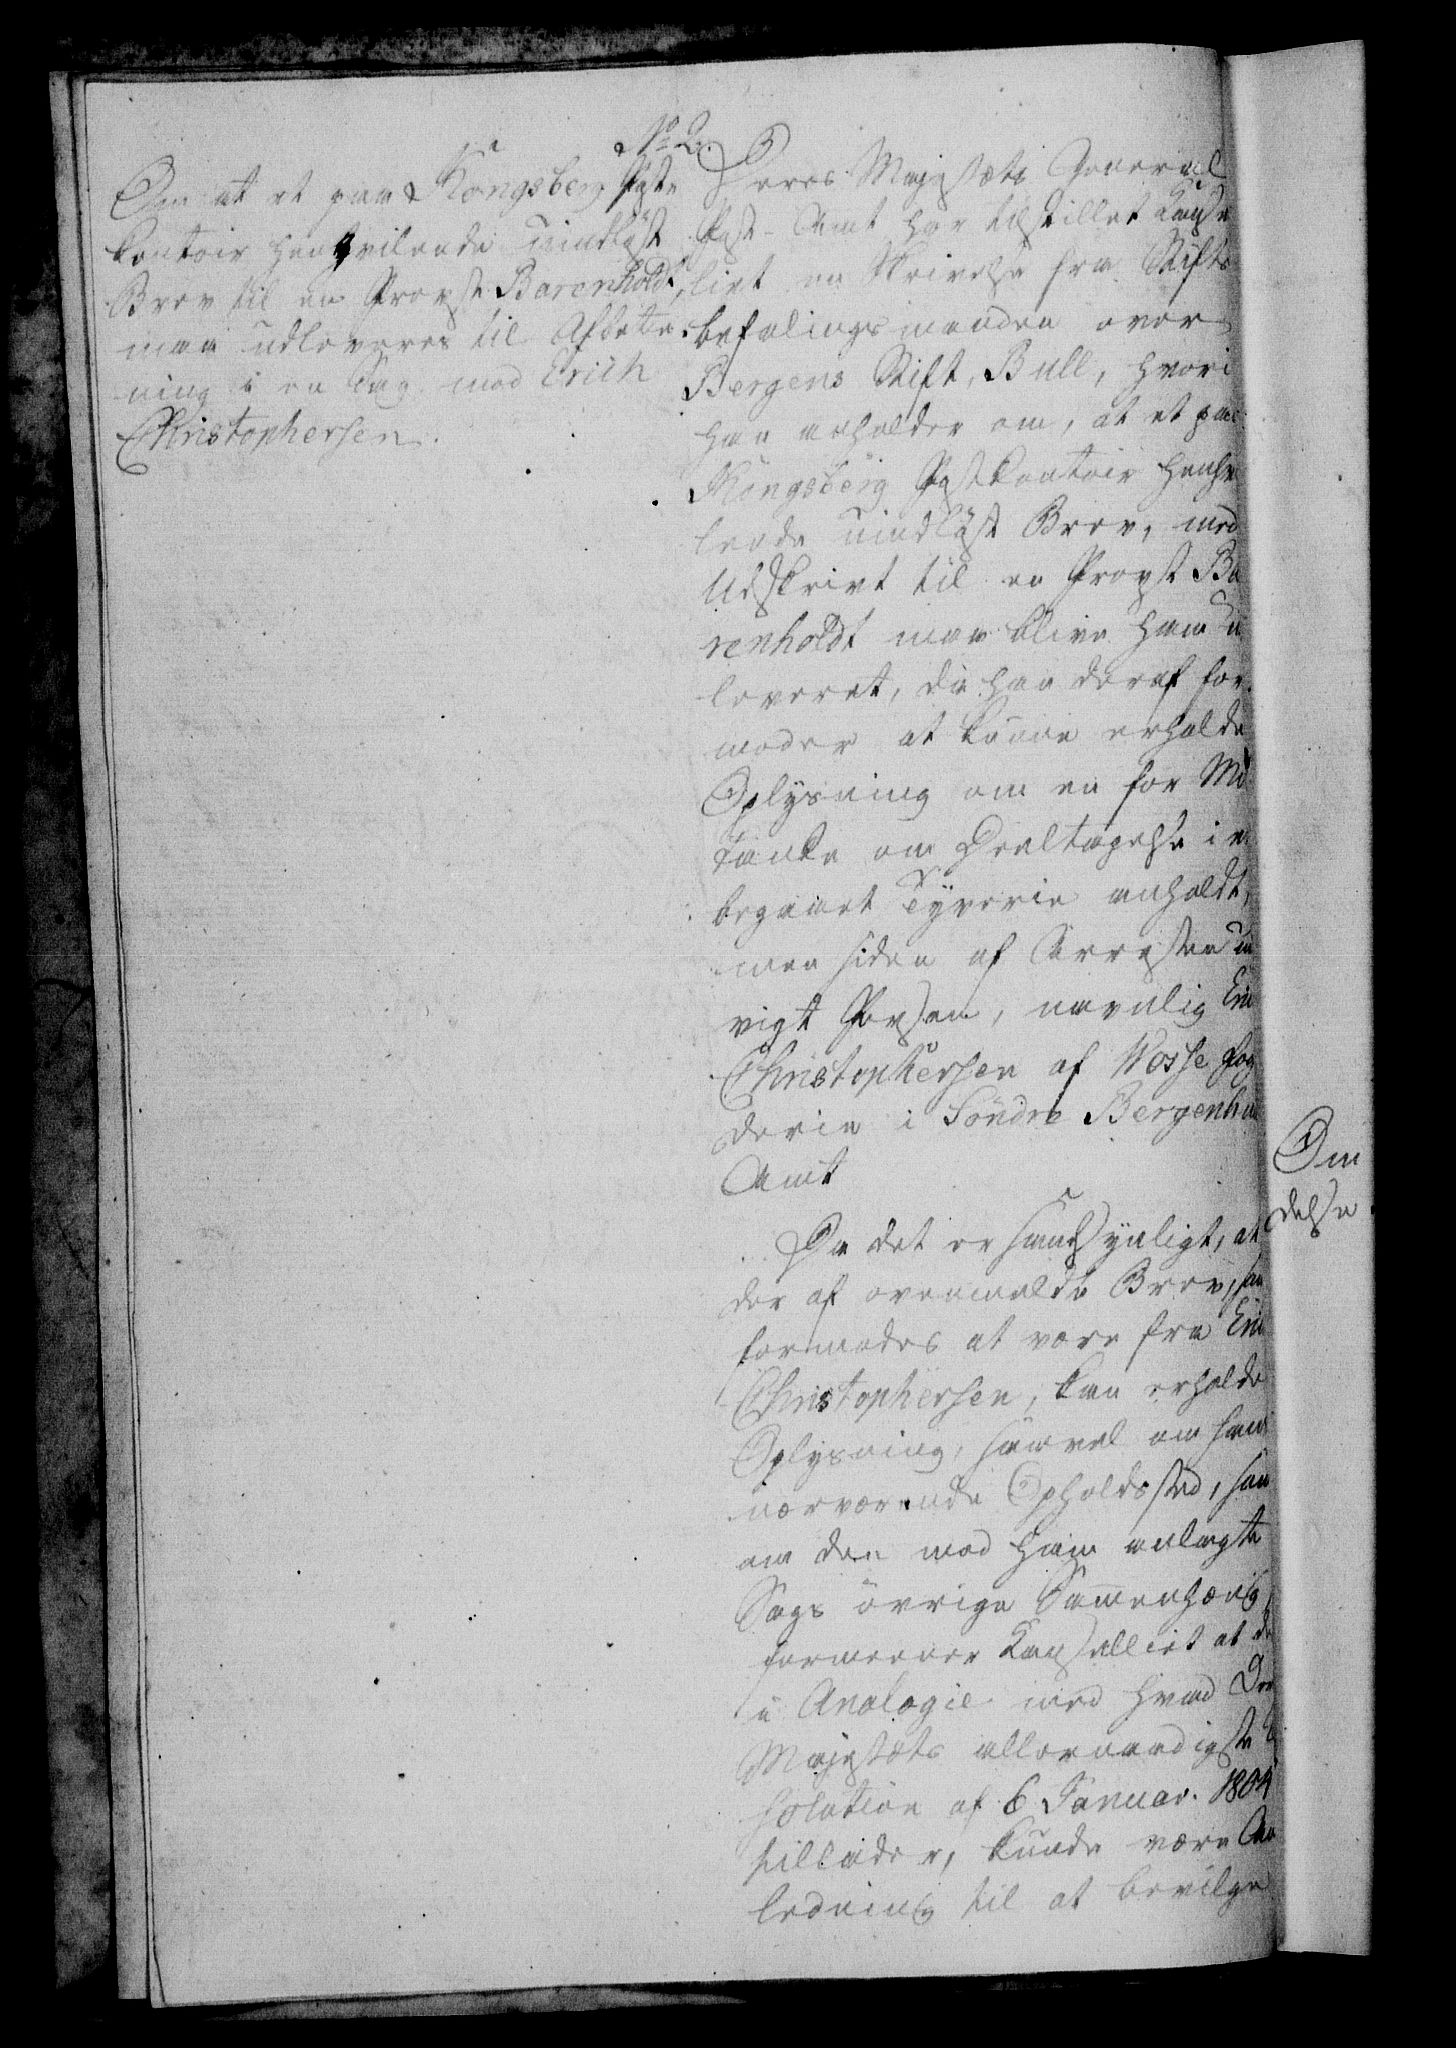 No 2.
Om at et paa Kongsberg Post-
kontoir henhvilende uindløst
Brev til en Provst Barenholdt,
maa udleveres til Afbetie-
ning i en Sag mod Erich
Christophersen.
Deres Majestæts General
Post-Amt har tilstillet Cancel
liet en Skrivelse fra Stifts
befalingsmanden over
Bergens Stift, Bull, hvori
han anholder om, at et paa
Kongsberg Postkontoir henhvi
lende uindløst Brev, med
Udskrivt til en Provst Ba
renholdt maa blive ham u
leveret, da han deraf for-
moder at kunne erholde
Oplysning om en for Mis
tanke om Deeltagelse i e
begaaet Tyverie anholdt,
men siden af Arresten un
vigt Person, navnlig Eric
Christophersen af Wosse Fog
derie i Söndre Bergenhu
Amt
Da det er sandsynligt, at
der af ovenmeldte Brev, som
formodes at være fra Eric
Christophersen, kan erholde
Oplysning, saavel om hans
nærværende Opholdssted, som
om den mod ham anlagte
Sags övrige Sammenhæng,
formeener Cancelliet at de
i Analogie med hvad Der
Majestæts allernaadigste Re
solution af 6 Januar. 1804
tillader, kunde være An
ledning til at bevilge
Om
delse